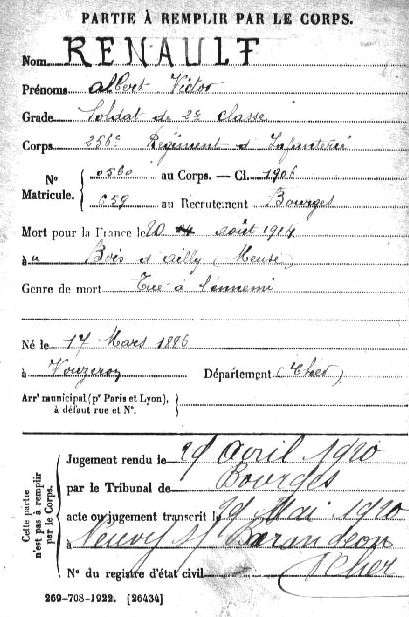 PARTIE À REMPLIR PAR LE CORPS.
Nom RENAULT
Prénoms Albert Victor
Grade Soldat de 2e classe
Corps 256e Régiment d'Infanterie
N° Matricule. { 0560 au Corps. — Cl. 1906
059 au Recrutement Bourges
Mort pour la France le 20 août 1914
à u Bois d'Ailly (Meuse)
Genre de mort Tué à l'ennemi
Né le 17 Mars 1886
à Vouzeron Département (Cher)
Arrt municipal (pr Paris et Lyon),
à défaut rue et N°.
Cette partie n'est pas à remplir par le Corps.
Jugement rendu le 29 Avril 1920
par le Tribunal de Bourges
acte ou jugement transcrit le 29 Mai 1920
à Neuvy s/ Barangeon
Cher
N° du registre d'état civil
269-708-1922. [26434]